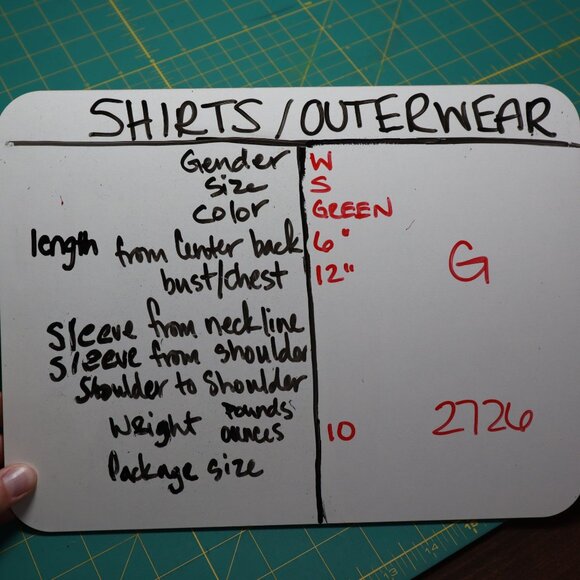 SHIRTS/OUTERWEAR
Gender W
Size S
Color GREEN
length from Center back 6"
G
bust/chest 12"
Sleeve from neckline
Sleeve from shoulder
Shoulder to Shoulder
Weight Pounds
ounces 10
2726
Package size
13
14
15